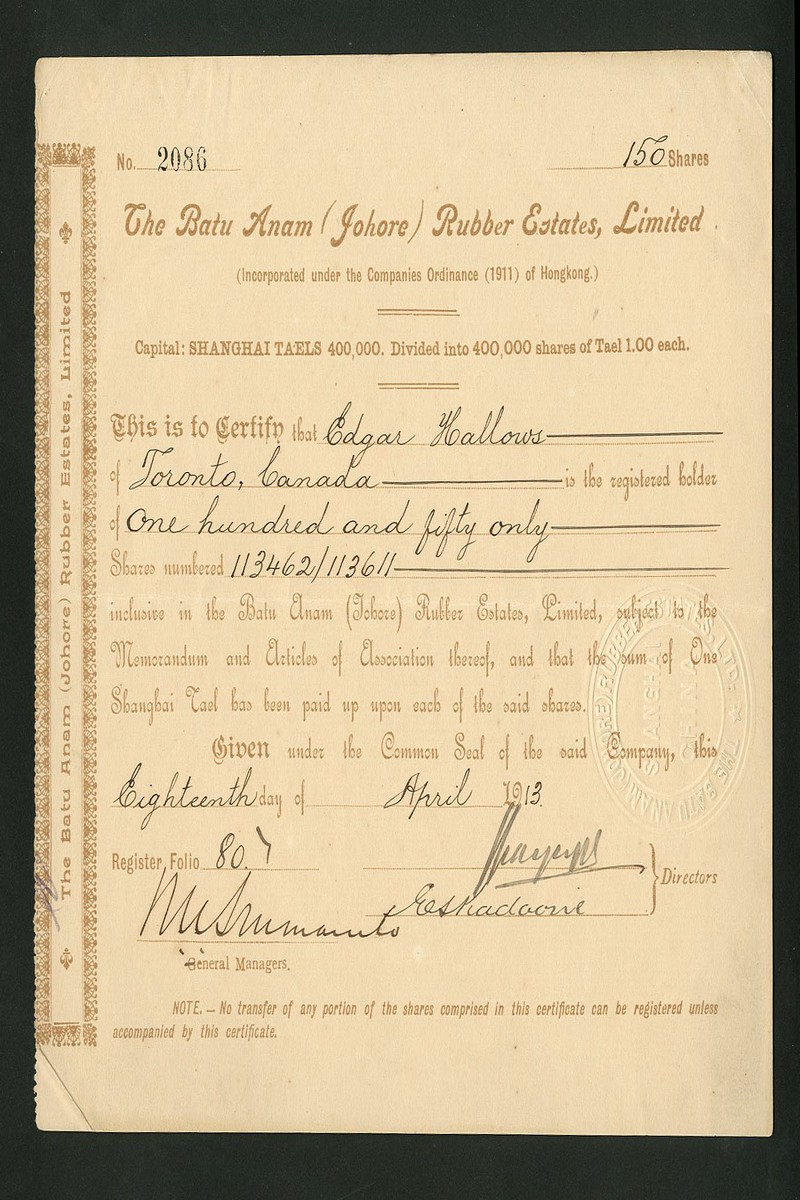 No. 2086 150 Shares
The Batu Anam (Johore) Rubber Estates, Limited.
(Incorporated under the Companies Ordinance (1911) of Hongkong.)
Capital: SHANGHAI TAELS 400,000. Divided into 400,000 shares of Tael 1.00 each.
This is to Certify that Edgar Hallows
of Toronto, Canada is the registered holder
of One hundred and fifty only
Shares numbered 113462/113611
inclusive in the Batu Anam (Johore) Rubber Estates, Limited, subject to the
Memorandum and Articles of Association thereof, and that the sum of One
Shanghai Tael has been paid up upon each of the said shares.
Given under the Common Seal of the said Company, this
Eighteenth day of April 1913.
Register Folio 807
Directors
General Managers.
NOTE. – No transfer of any portion of the shares comprised in this certificate can be registered unless
accompanied by this certificate.
The Batu Anam (Johore) Rubber Estates, Limited
THE BATU ANAM (JOHORE) RUBBER ESTATES, LTD.
SHANGHAI
CHINA